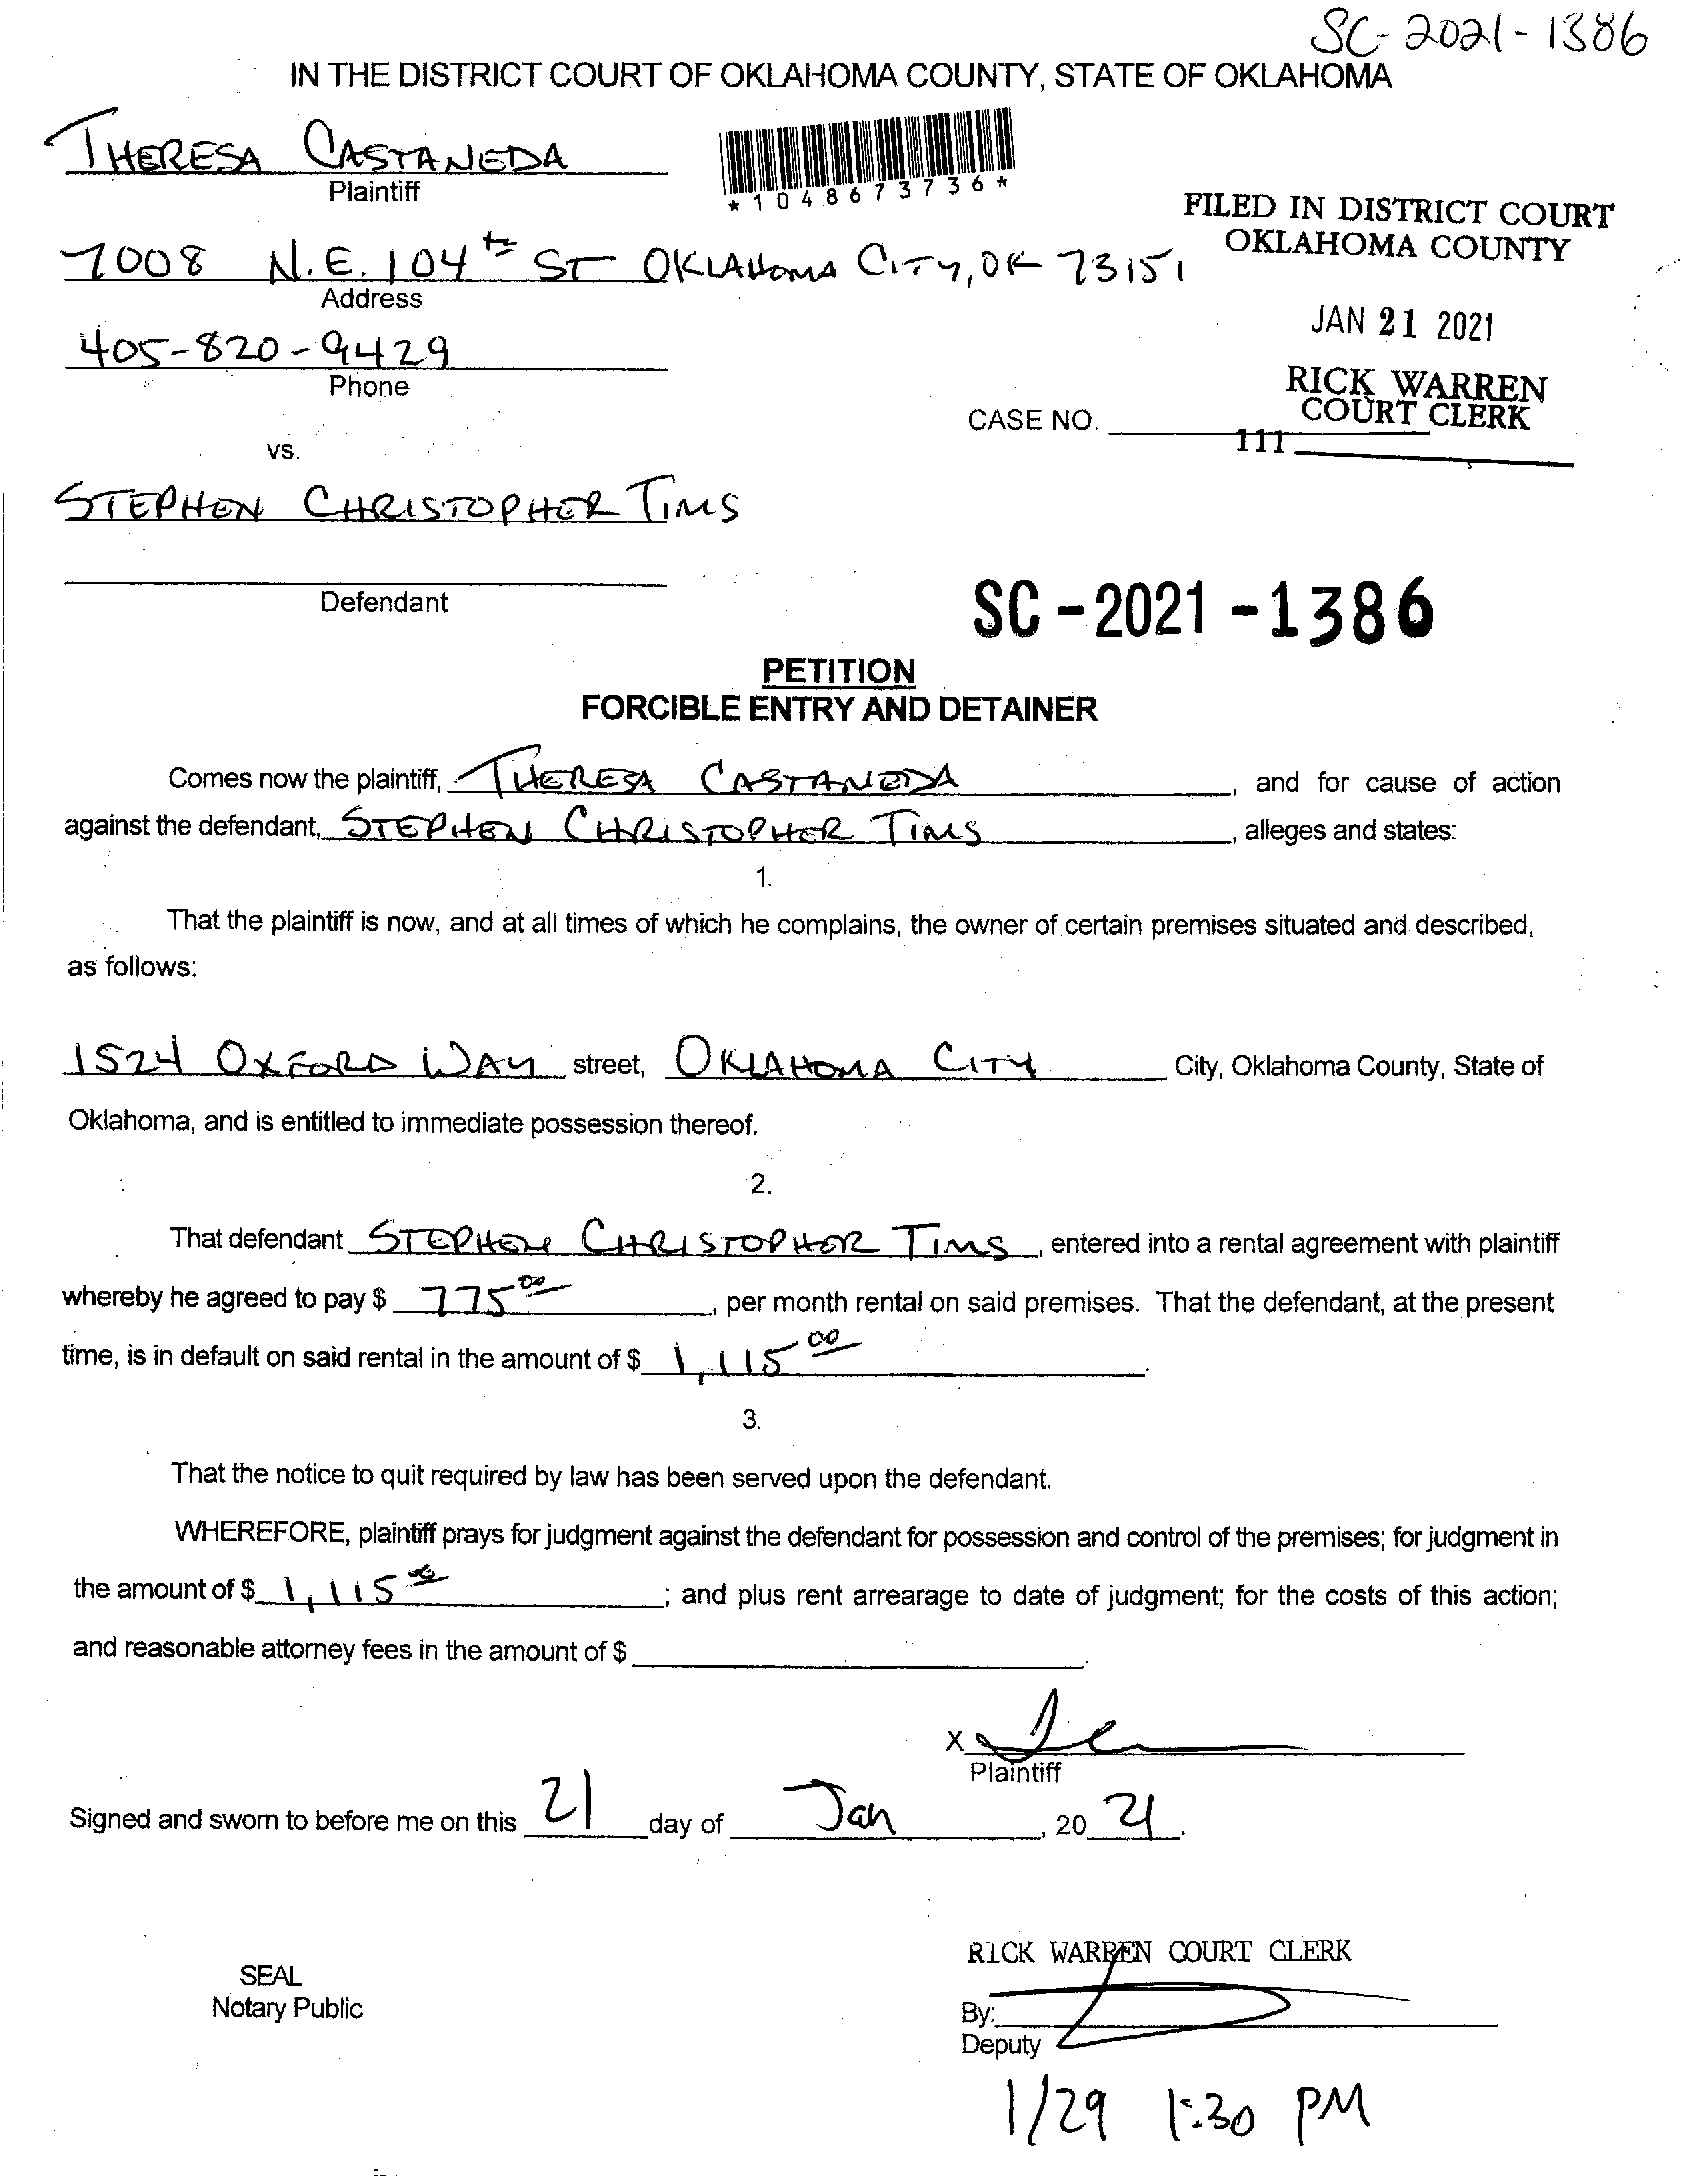 SC-2021-1386
IN THE DISTRICT COURT OF OKLAHOMA COUNTY, STATE OF OKLAHOMA
THERESA CASTANEDA
Plaintiff
*1048673736*
FILED IN DISTRICT COURT
OKLAHOMA COUNTY
7008 N.E. 104th ST OKLAHOMA CITY, OK 73151
Address
JAN 21 2021
405-820-9429
Phone
RICK WARREN
COURT CLERK
CASE NO.
111
vs.
STEPHEN CHRISTOPHER TIMS
Defendant
SC-2021-1386
PETITION
FORCIBLE ENTRY AND DETAINER
Comes now the plaintiff, THERESA CASTANEDA, and for cause of action
against the defendant, STEPHEN CHRISTOPHER TIMS, alleges and states:
1.
That the plaintiff is now, and at all times of which he complains, the owner of certain premises situated and described,
as follows:
1524 OXFORD WAY street, OKLAHOMA CITY City, Oklahoma County, State of
Oklahoma, and is entitled to immediate possession thereof.
2.
That defendant STEPHEN CHRISTOPHER TIMS, entered into a rental agreement with plaintiff
whereby he agreed to pay $ 775 00, per month rental on said premises. That the defendant, at the present
time, is in default on said rental in the amount of $ 1,115 00.
3.
That the notice to quit required by law has been served upon the defendant.
WHEREFORE, plaintiff prays for judgment against the defendant for possession and control of the premises; for judgment in
the amount of $ 1,115 00; and plus rent arrearage to date of judgment; for the costs of this action;
and reasonable attorney fees in the amount of $.
X
Plaintiff
Signed and sworn to before me on this 21 day of Jan, 20 21.
RICK WARREN COURT CLERK
SEAL
Notary Public
By:
Deputy
1/29 1:30 PM